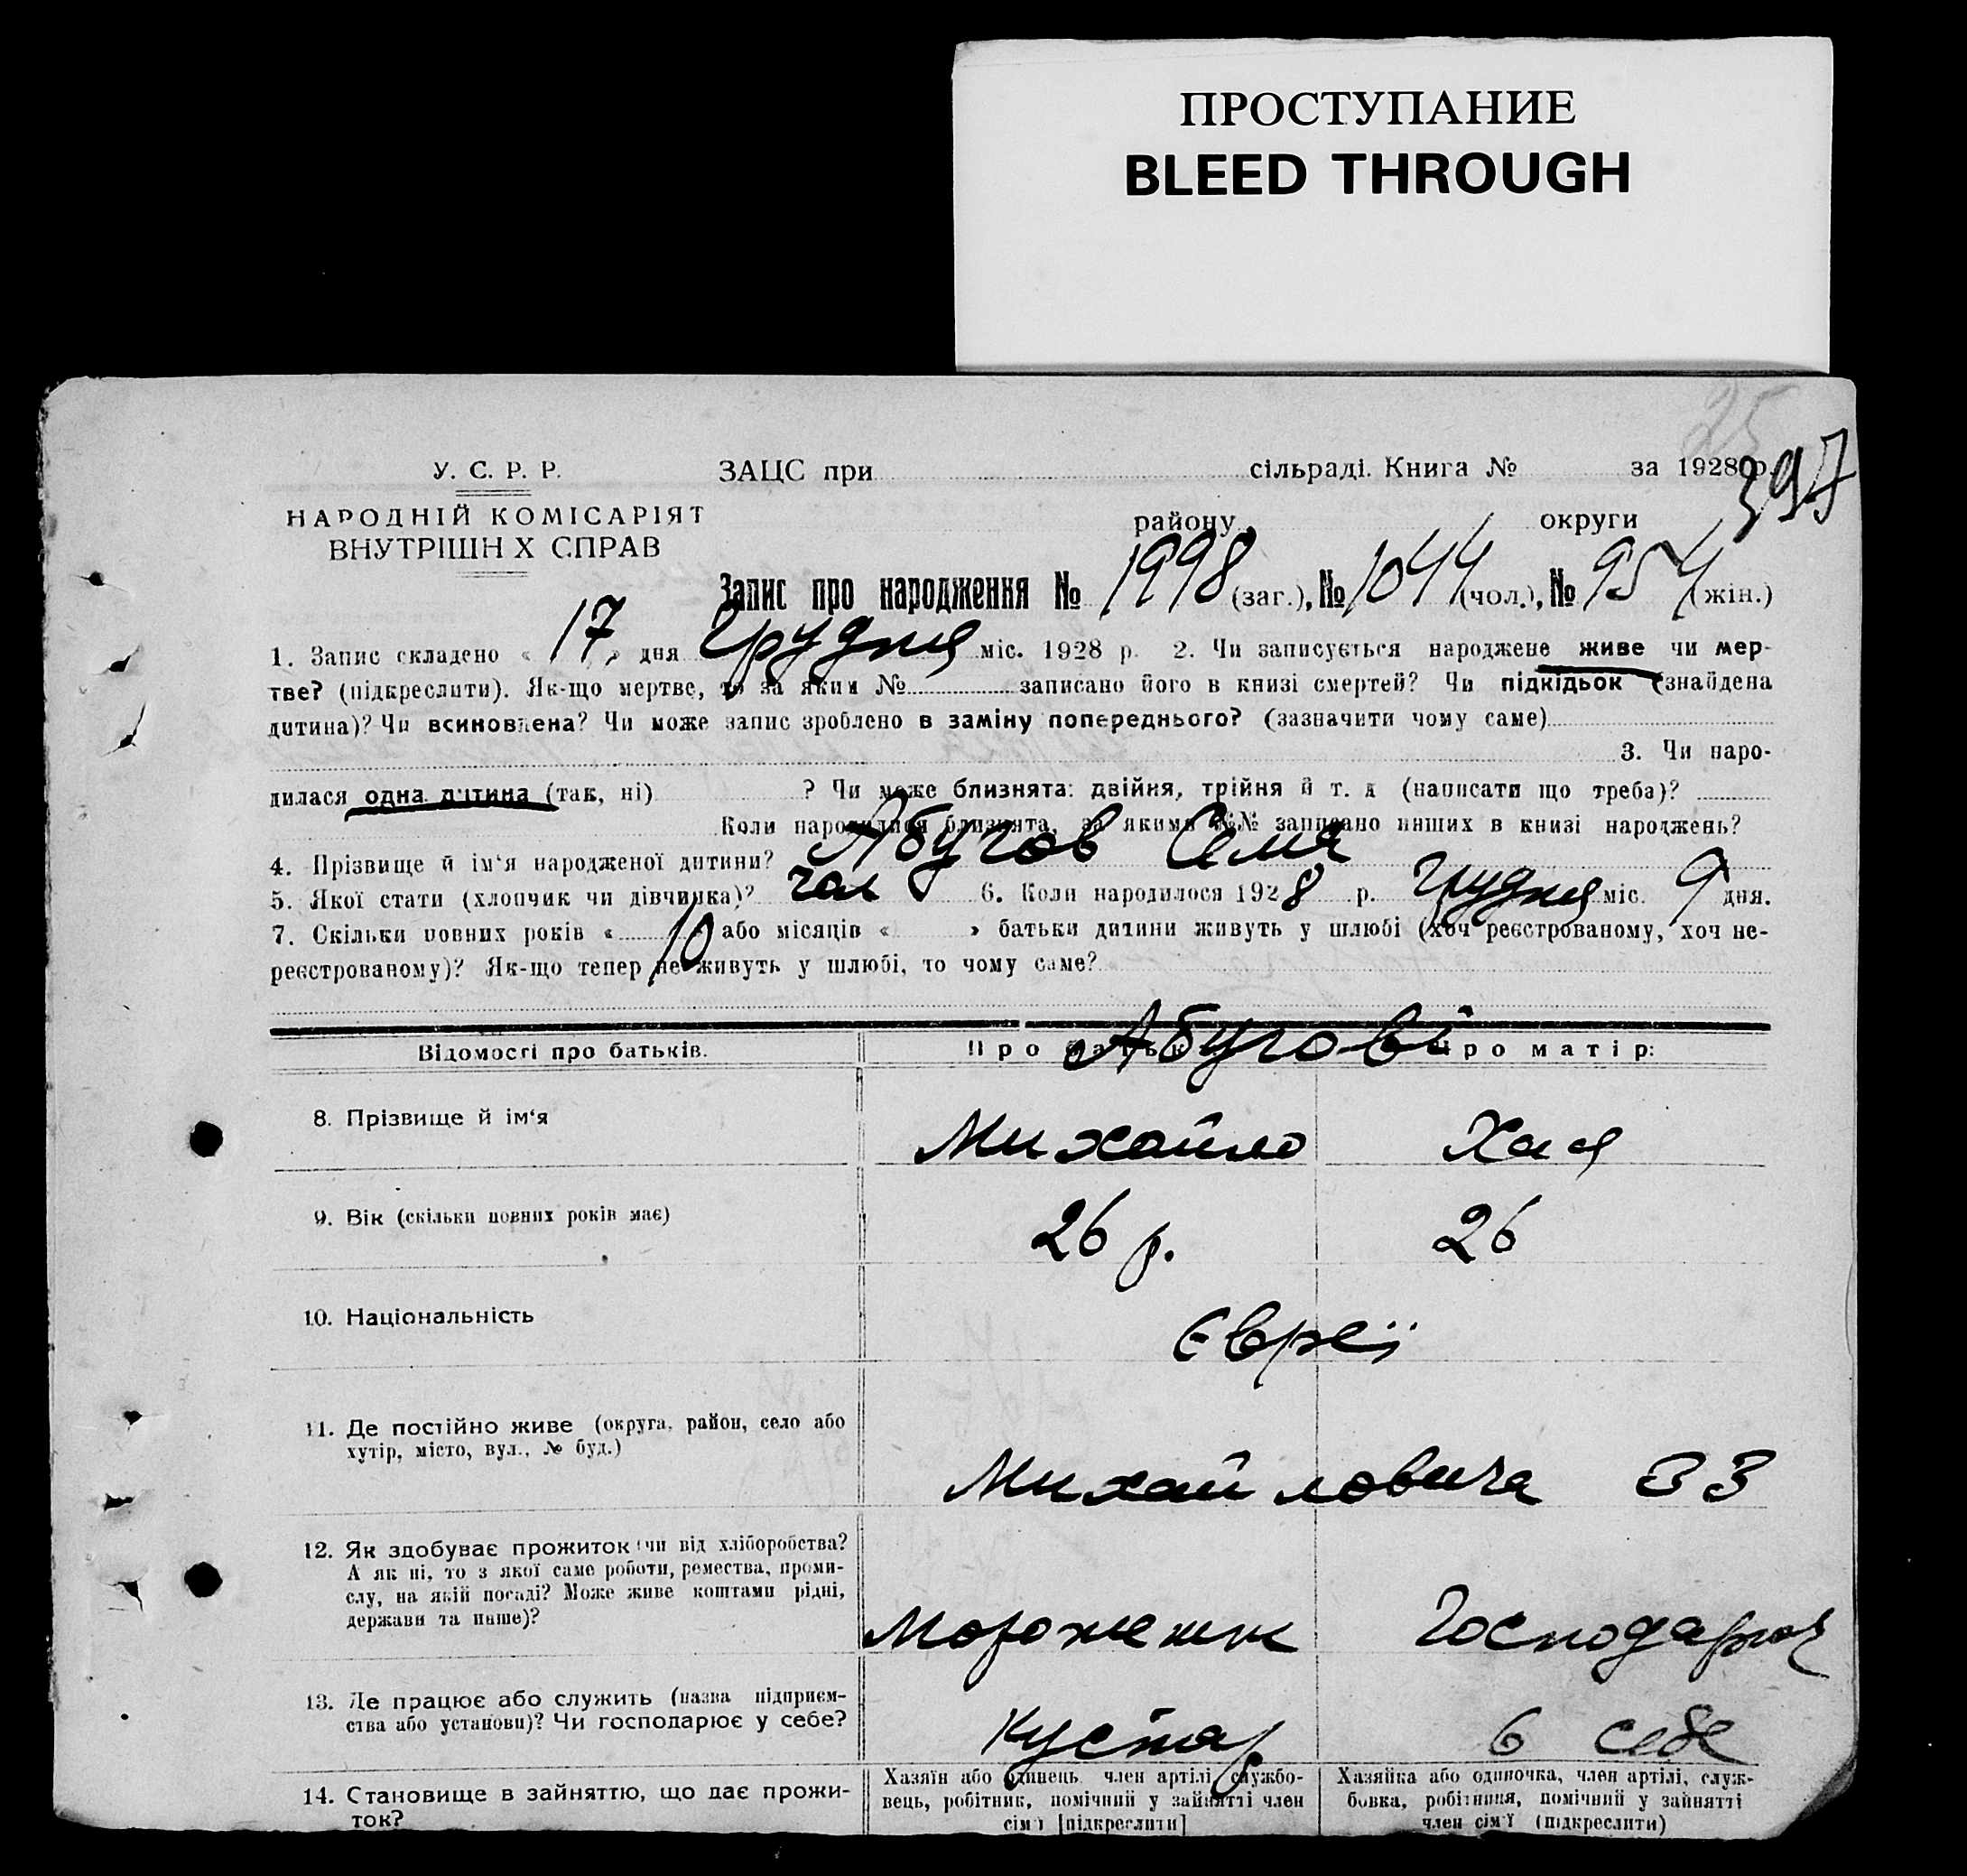 ПРОСТУПАНИЕ
BLEED THROUGH
25
397
У. С. Р. Р. ЗАЦС при сільраді. Книга № за 1928 р.
НАРОДНІЙ КОМІСАРІЯТ
ВНУТРІШН Х СПРАВ
району округи
Запис про народження № 1998 (заг.), № 1044 (чол.), № 954 (жін.)
1. Запис складено « 17 » дня Грудня міс. 1928 р. 2. Чи записується народжене живе чи мер-
тве? (підкреслити). Як-що мертве, то за яким № записано його в книзі смертей? Чи підкідьок (знайдена
дитина)? Чи всиновлена? Чи може запис зроблено в заміну попереднього? (зазначити чому саме)
3. Чи наро-
дилася одна дитина (так, ні) ? Чи може близнята: двійня, трійня й т. д (написати що треба)?
Коли народилися близнята, за якими №№ записано инших в книзі народжень?
4. Прізвище й ім'я народженої дитини? Абугов Сема
5. Якої стати (хлопчик чи дівчинка)? чол 6. Коли народилося 1928 р. Грудня міс. 9 дня.
7. Скільки повних років « 10 або місяців « » батьки дитини живуть у шлюбі (хоч реєстрованому, хоч не-
реєстрованому)? Як-що тепер не живуть у шлюбі, то чому саме?
Абугові
Відомості про батьків. Про батька Про матір:
8. Прізвище й ім'я Михайло Хая
9. Вік (скільки повних років має) 26 р. 26
10. Національність Євреї
11. Де постійно живе (округа, район, село або
хутір, місто, вул., № буд.)
Михайловича 33
12. Як здобуває прожиток (чи від хліборобства?
А як ні, то з якої саме роботи, ремества, проми-
слу, на якій посаді? Може живе коштами рідні,
держави та инше)?
Мороженик Господарює
13. Де працює або служить (назва підприєм-
ства або установи)? Чи господарює у себе?
Кустар в себе
14. Становище в зайняттю, що дає прожи-
ток?
Хазяїн або одинець, член артілі, службо-
вець, робітник, помічний у зайнятті член
сім'ї [підкреслити]
Хазяйка або одиночка, член артілі, служ-
бовка, робітниця, помічний у зайнятті
член сім'ї (підкреслити)